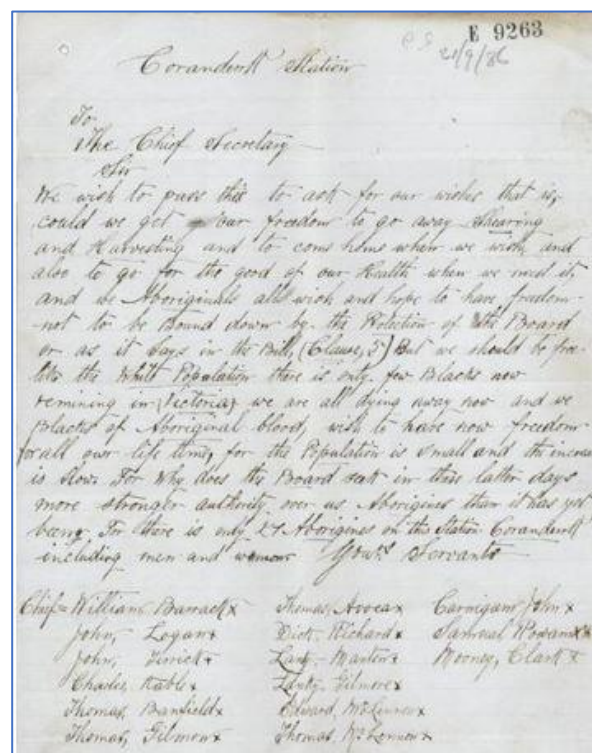 E 9263
21/9/86
Coranderrk Station
To
The Chief Secretary
Sir
We wish to pass this to ask for our wishes that is,
could we get our freedom to go away Shearing
and Harvesting and to come home when we wish, and
also to go for the good of our Health when we need it,
and we Aboriginals all wish and hope to have freedom
not to be bound down by the Protection of the Board
or as it says in the Bill, (Clause, 5) But we should be free
like the White Population there is only few Blacks now
remining in (Victoria) we are all dying away now and we
Blacks of Aboriginal blood, wish to have now freedom
for all our life time, for the Population is small and the increase
is slow. For Why does the Board seek in these latter days
more stronger authority over us Aborigines than it has yet
been. For there is only 27 Aborigines on this Station Coranderrk
including men and women Yours Servants
Chief = William Barrack x Thomas, Avoca x Carnigam John x
John, Logan x Dick, Richard x Samuel Rowan x
John, Terrick x Lanky, Manton x Mooney, Clark x
Charles, x Lanky, Gilmore x
Thomas, Banfield x Edward, McLennon x
Thomas, Gilmore x Thomas, McLennon x